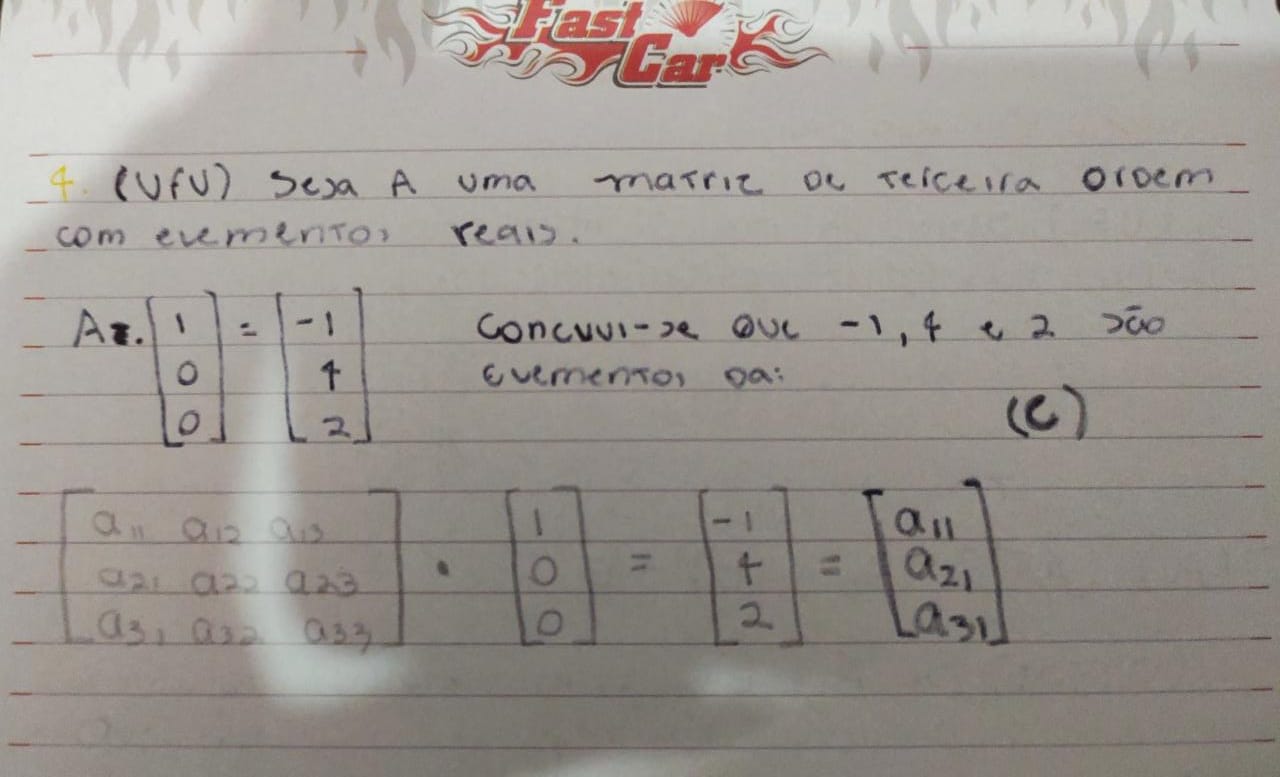 Fast
Car
4. (UFU) Seja A uma matriz de terceira ordem
com elementos reais.
A . [1 0 0] = [-1 4 2]
Conclui-se que -1, 4 e 2 são
elementos da:
(C)
[a11 a12 a13
a21 a22 a23
a31 a32 a33] . [1 0 0] = [-1 4 2] = [a11 a21 a31]